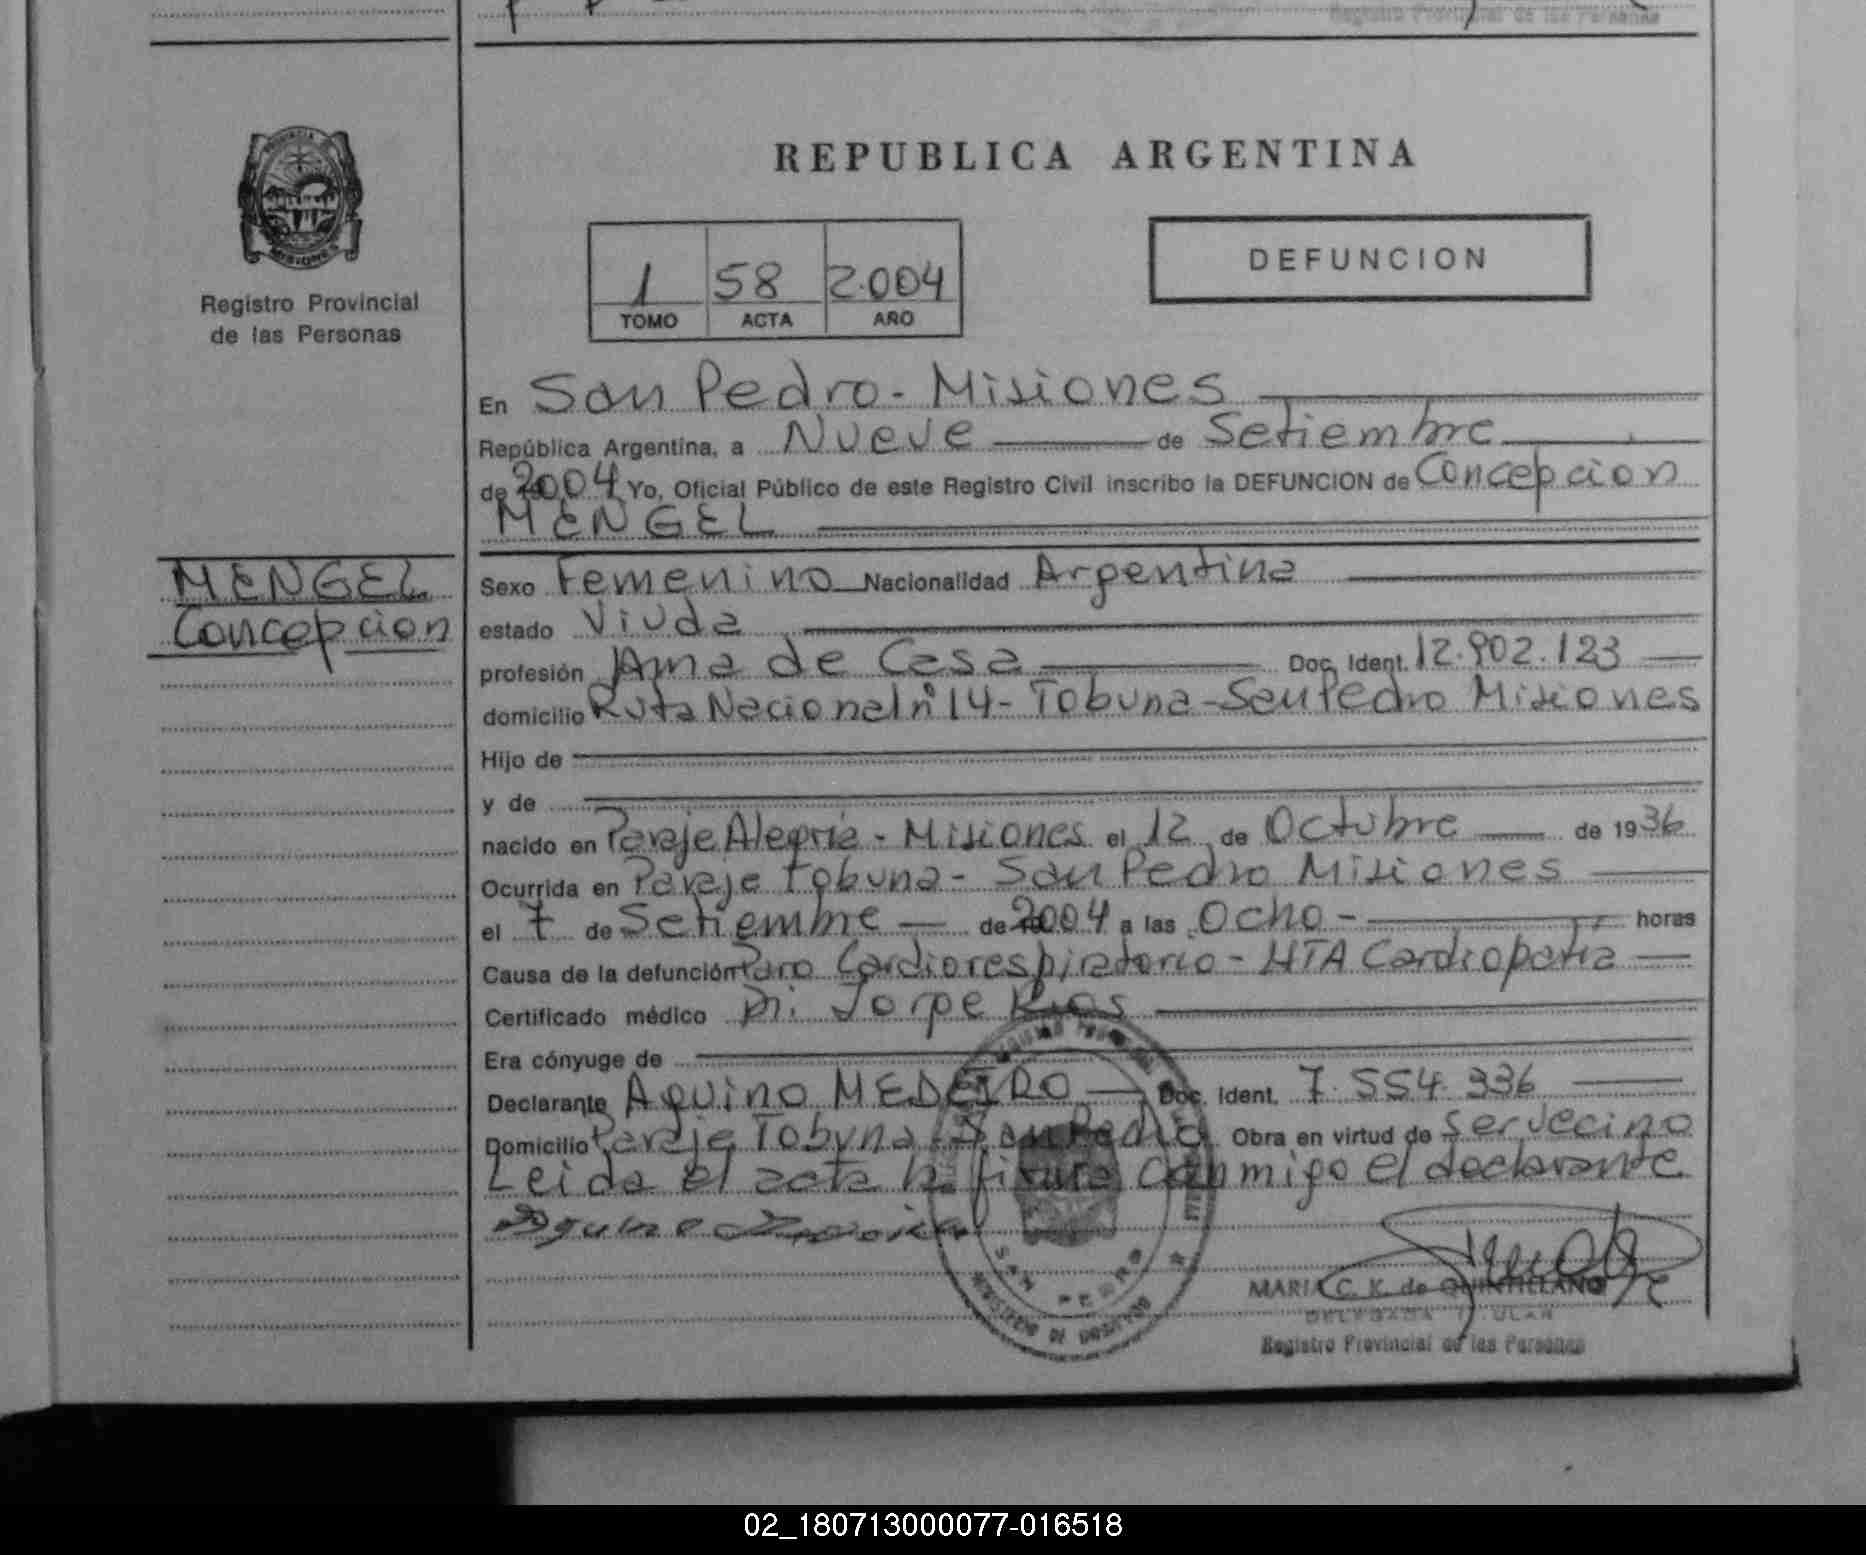 Registro Provincial de las Personas
PROVINCIA
MISIONES
Registro Provincial
de las Personas
REPUBLICA ARGENTINA
1 58 2.004
TOMO ACTA AÑO
DEFUNCION
En San Pedro - Misiones
República Argentina, a Nueve de Setiembre
de 2004 Yo, Oficial Público de este Registro Civil inscribo la DEFUNCION de Concepcion
MENGEL
MENGEL
Concepcion
Sexo Femenino Nacionalidad Argentina
estado Viuda
profesión Ama de Casa Doc. Ident. 12.902.123
domicilio Ruta Nacional nº 14 - Tobuna - San Pedro Misiones
Hijo de
y de
nacido en Paraje Alegria - Misiones el 12 de Octubre de 1936
Ocurrida en Paraje Tobuna - San Pedro Misiones
el 7 de Setiembre de 2004 a las Ocho - horas
Causa de la defunción Paro Cardiorespiratorio - HTA Cardiopatia
Certificado médico Dr. Jorge Rios
Era cónyuge de
Declarante Aquino MEDEIRO Doc. Ident. 7.554.336
Domicilio Paraje Tobuna - San Pedro Obra en virtud de ser vecino
Leida el acta la firma conmigo el declarante
SAN PEDRO
MARIA C. K. de QUINTILLANO
DELEGADA TITULAR
Registro Provincial de las Personas
02_180713000077-016518